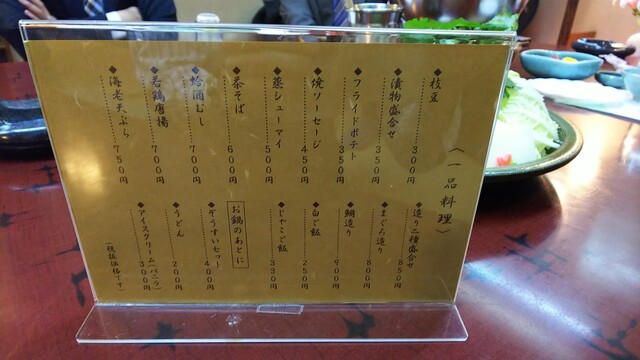 〈一品料理〉
◆枝豆 300円
◆漬物盛合せ 350円
◆フライドポテト 350円
◆焼ソーセージ 450円
◆蒸シューマイ 500円
◆茶そば 600円
◆蛤酒むし 700円
◆若鶏唐揚 700円
◆海老天ぷら 750円
◆造り二種盛合せ 850円
◆まぐろ造り 800円
◆鯛造り 900円
◆白ご飯 250円
◆じゃこご飯 330円
お鍋のあとに
◆ぞうすいセット 400円
◆うどん 200円
◆アイスクリーム(バニラ) 300円
(税抜価格です)